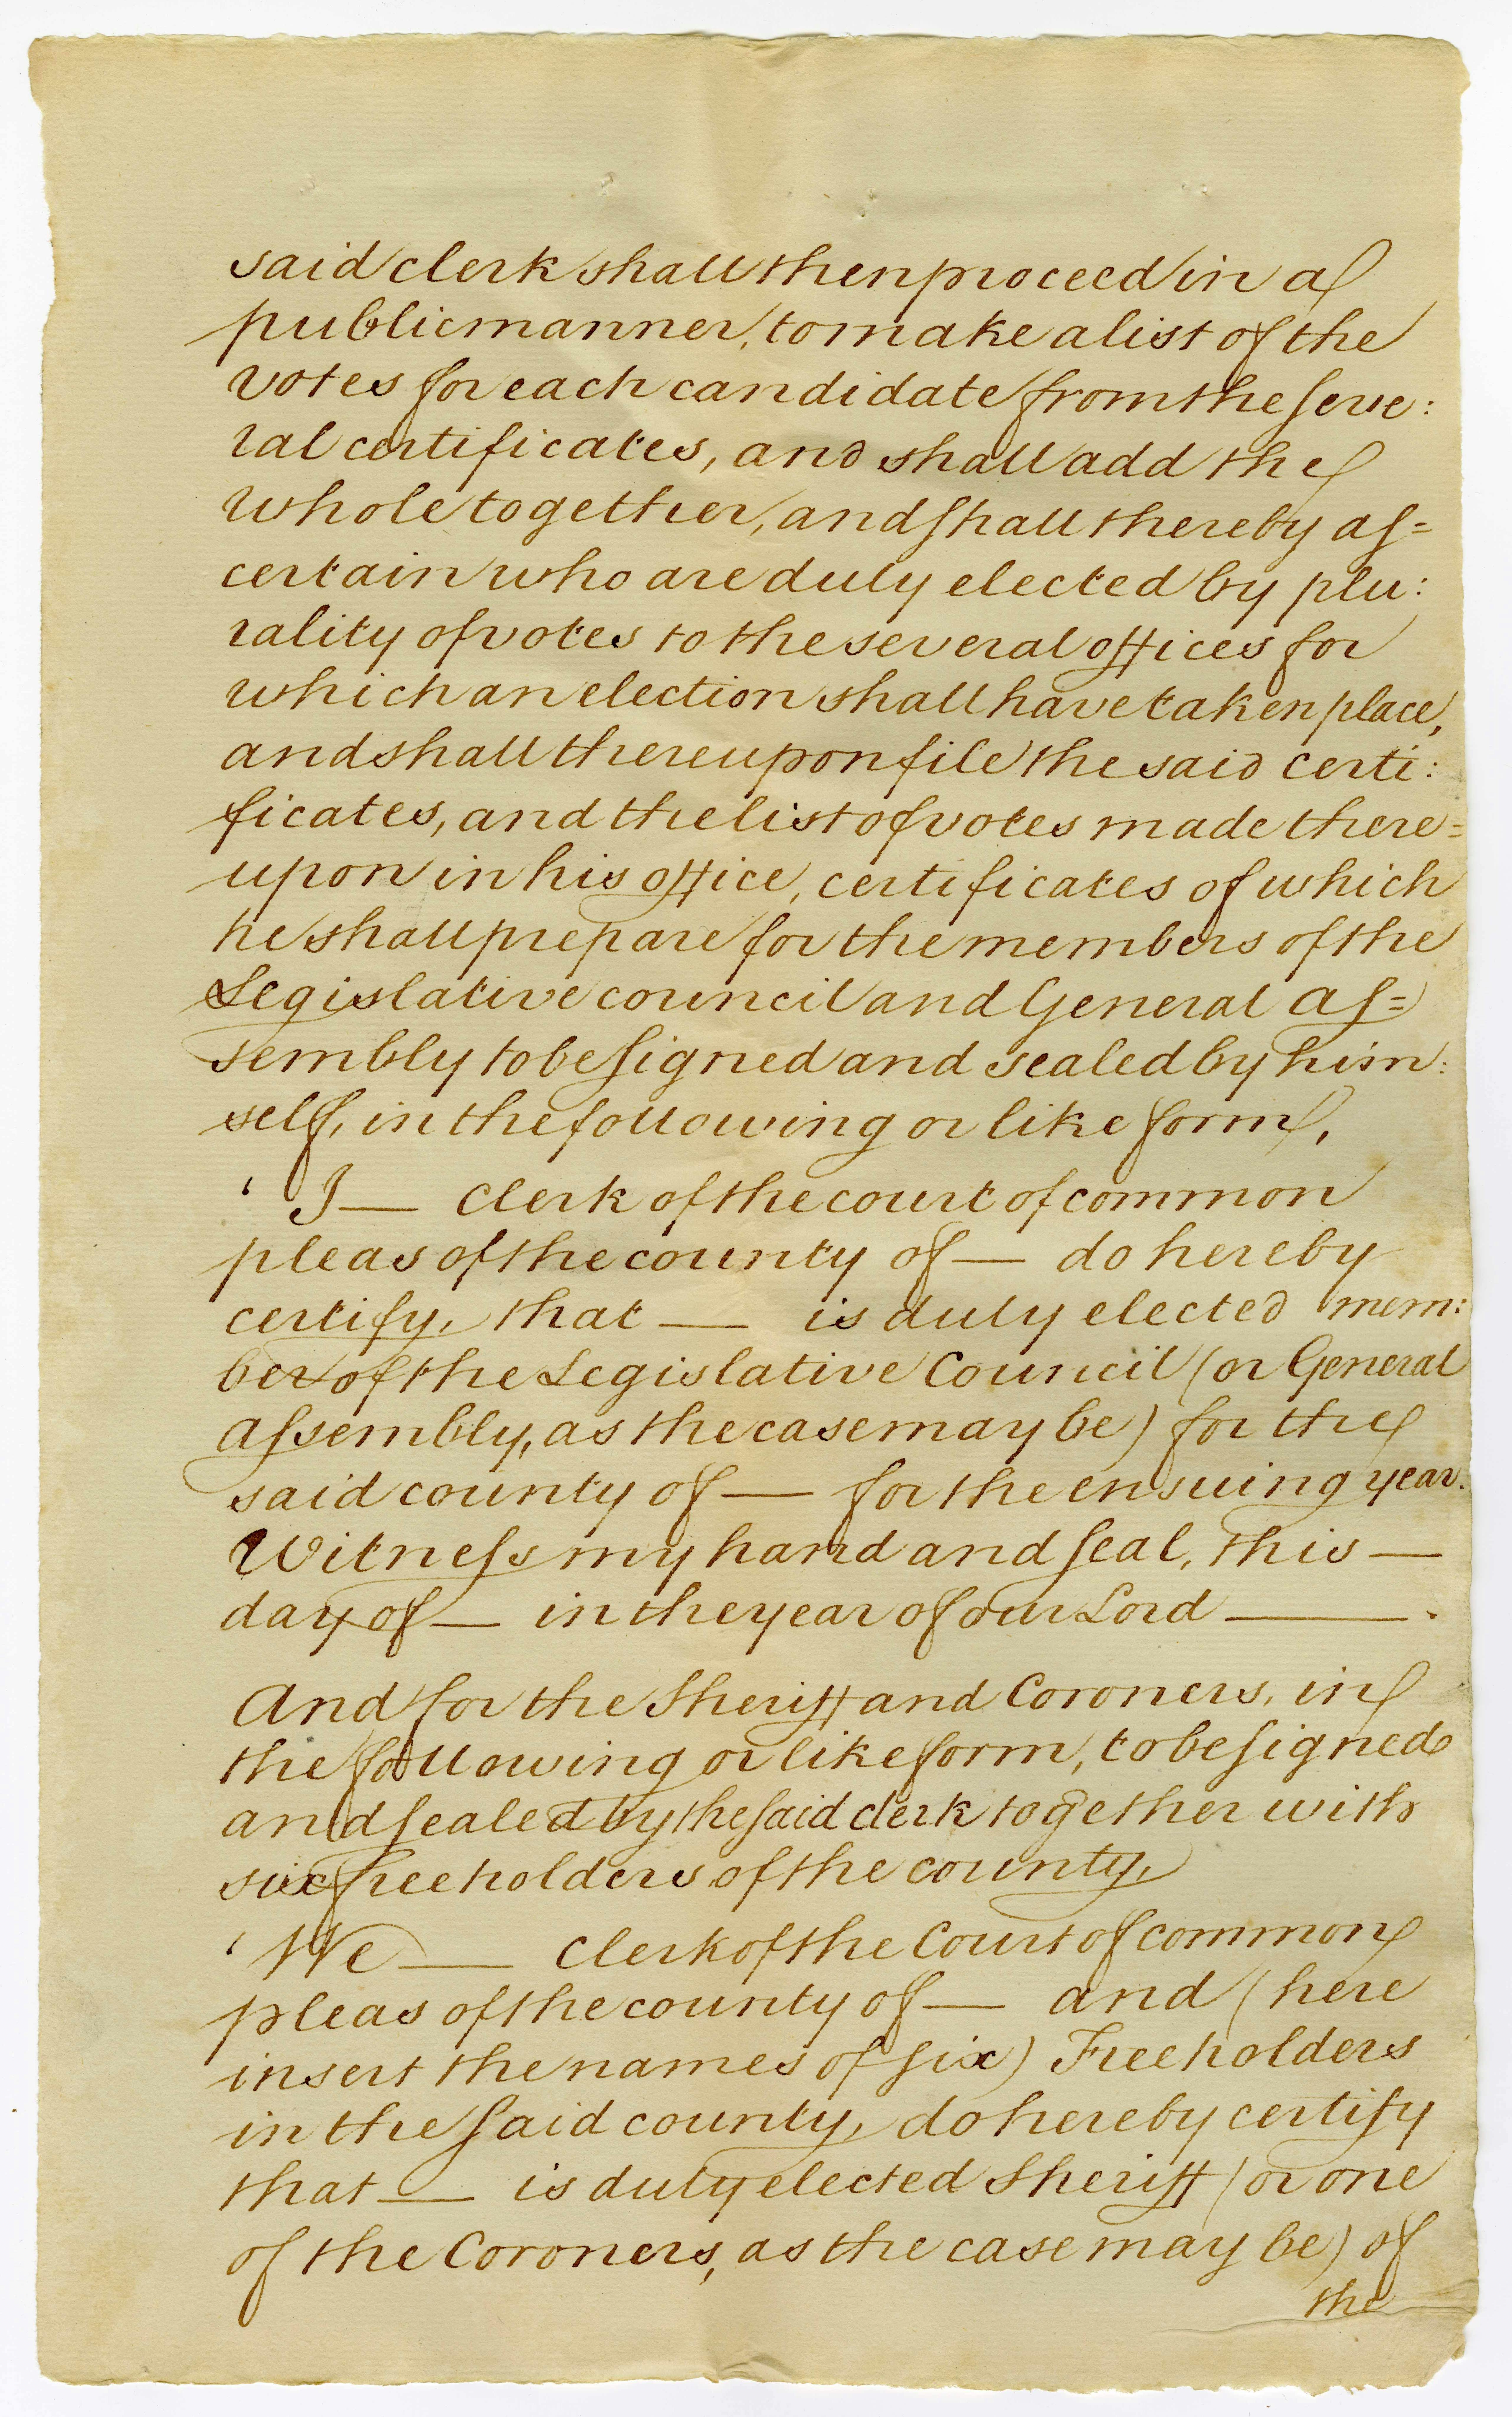 said clerk shall then proceed in a
public manner, to make a list of the
votes for each candidate from the seve:
ral certificates, and shall add the
whole together, and shall thereby as=
certain who are duly elected by plu:
rality of votes to the several offices for
which an election shall have taken place,
and shall thereupon file the said certi:
ficates, and the list of votes made there=
upon in his office, certificates of which
he shall prepare for the members of the
Legislative council and General As=
sembly to be signed and sealed by him:
self, in the following or like form,
‘ I — Clerk of the court of common
pleas of the county of — do hereby
certify, that — is duly elected mem:
ber of the Legislative Council (or General
Assembly, as the case may be) for the
said county of — for the ensuing year.
Witness my hand and seal, this —
day of — in the year of our Lord — .
And for the Sheriff and Coroners, in
the following or like form, to be signed
and sealed by the said clerk together with
six freeholders of the county,
‘ We — Clerk of the Court of common
pleas of the county of — and (here
insert the names of six) Freeholders
in the said county, do hereby certify
that — is duly elected Sheriff (or one
of the Coroners, as the case may be) of
the